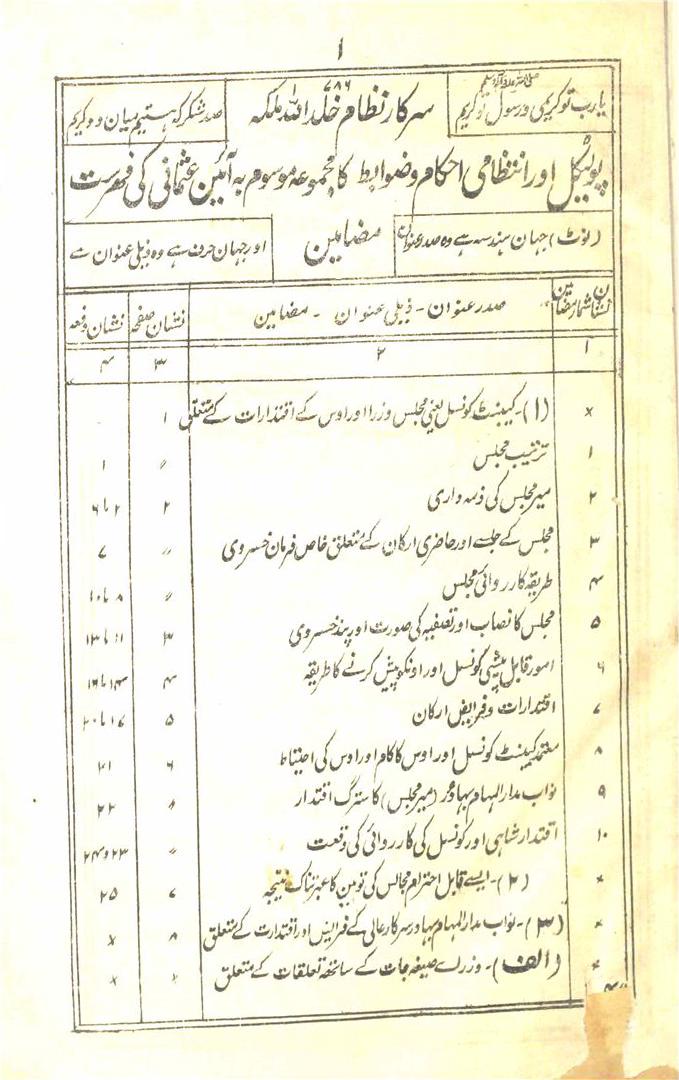 ۱
یارب تو کریمی و رسول تو کریم صلی اللہ علیہ وآلہ وسلم
۷۸۶
سرکار نظام خلد اللہ ملکہ
صد شکر کہ ہستیم میان دو کریم
پولیٹکل اور انتظامی احکام وضوابط کا مجموعہ موسوم بہ آئین عثمانی کی فہرست
(نوٹ) جہان ہندسہ ہے وہ صدر عنوان
مضامین
اور جہان حرف ہے وہ ذیلی عنوان ہے
نشان شمار مضامین صدر عنوان - ذیلی عنوان - مضامین نشان صفحہ نشان دفعہ
۱ ۲ ۳ ۴
× (۱)- کیبنٹ کونسل یعنی مجلس وزرا اور اوس کے اقتدارات کے متعلق ۱
۱ ترتیب مجلس 〃 ۱
۲ میر مجلس کی ذمہ داری ۲ ۲ تا ۶
۳ مجلس کے جلسے اور حاضری ارکان کے متعلق خاص فرمان خسروی 〃 ۷
۴ طریقہ کارروائی مجلس 〃 ۸ تا ۱۰
۵ مجلس کا نصاب اور تصفیہ کی صورت اور پند خسروی ۳ ۱۱ تا ۱۳
۶ امور قابل پیشی کونسل اور اونکو پیش کرنے کا طریقہ ۴ ۱۴ تا ۱۶
۷ اقتدارات و فرایض ارکان ۵ ۱۷ تا ۲۰
۸ معتمد کیبنٹ کونسل اور اوس کا کام اور اوس کی احتیاط ۶ ۲۱
۹ نواب مدار المہام بہادر (میر مجلس) کا سترگ اقتدار 〃 ۲۲
۱۰ اقتدار شاہی اور کونسل کی کارروائی کی وقعت 〃 ۲۳ و ۲۴
× (۲)- ایسے قابل احترام مجالس کی توہین کا عبرتناک نتیجہ ۷ ۲۵
× (۳)- نواب مدار المہام بہادر سرکار عالی کے فرایض اور اقتدارت کے متعلق ۸ ×
× (الف)- وزراے صیغہ جات کے ساتھہ تعلقات کے متعلق × ×